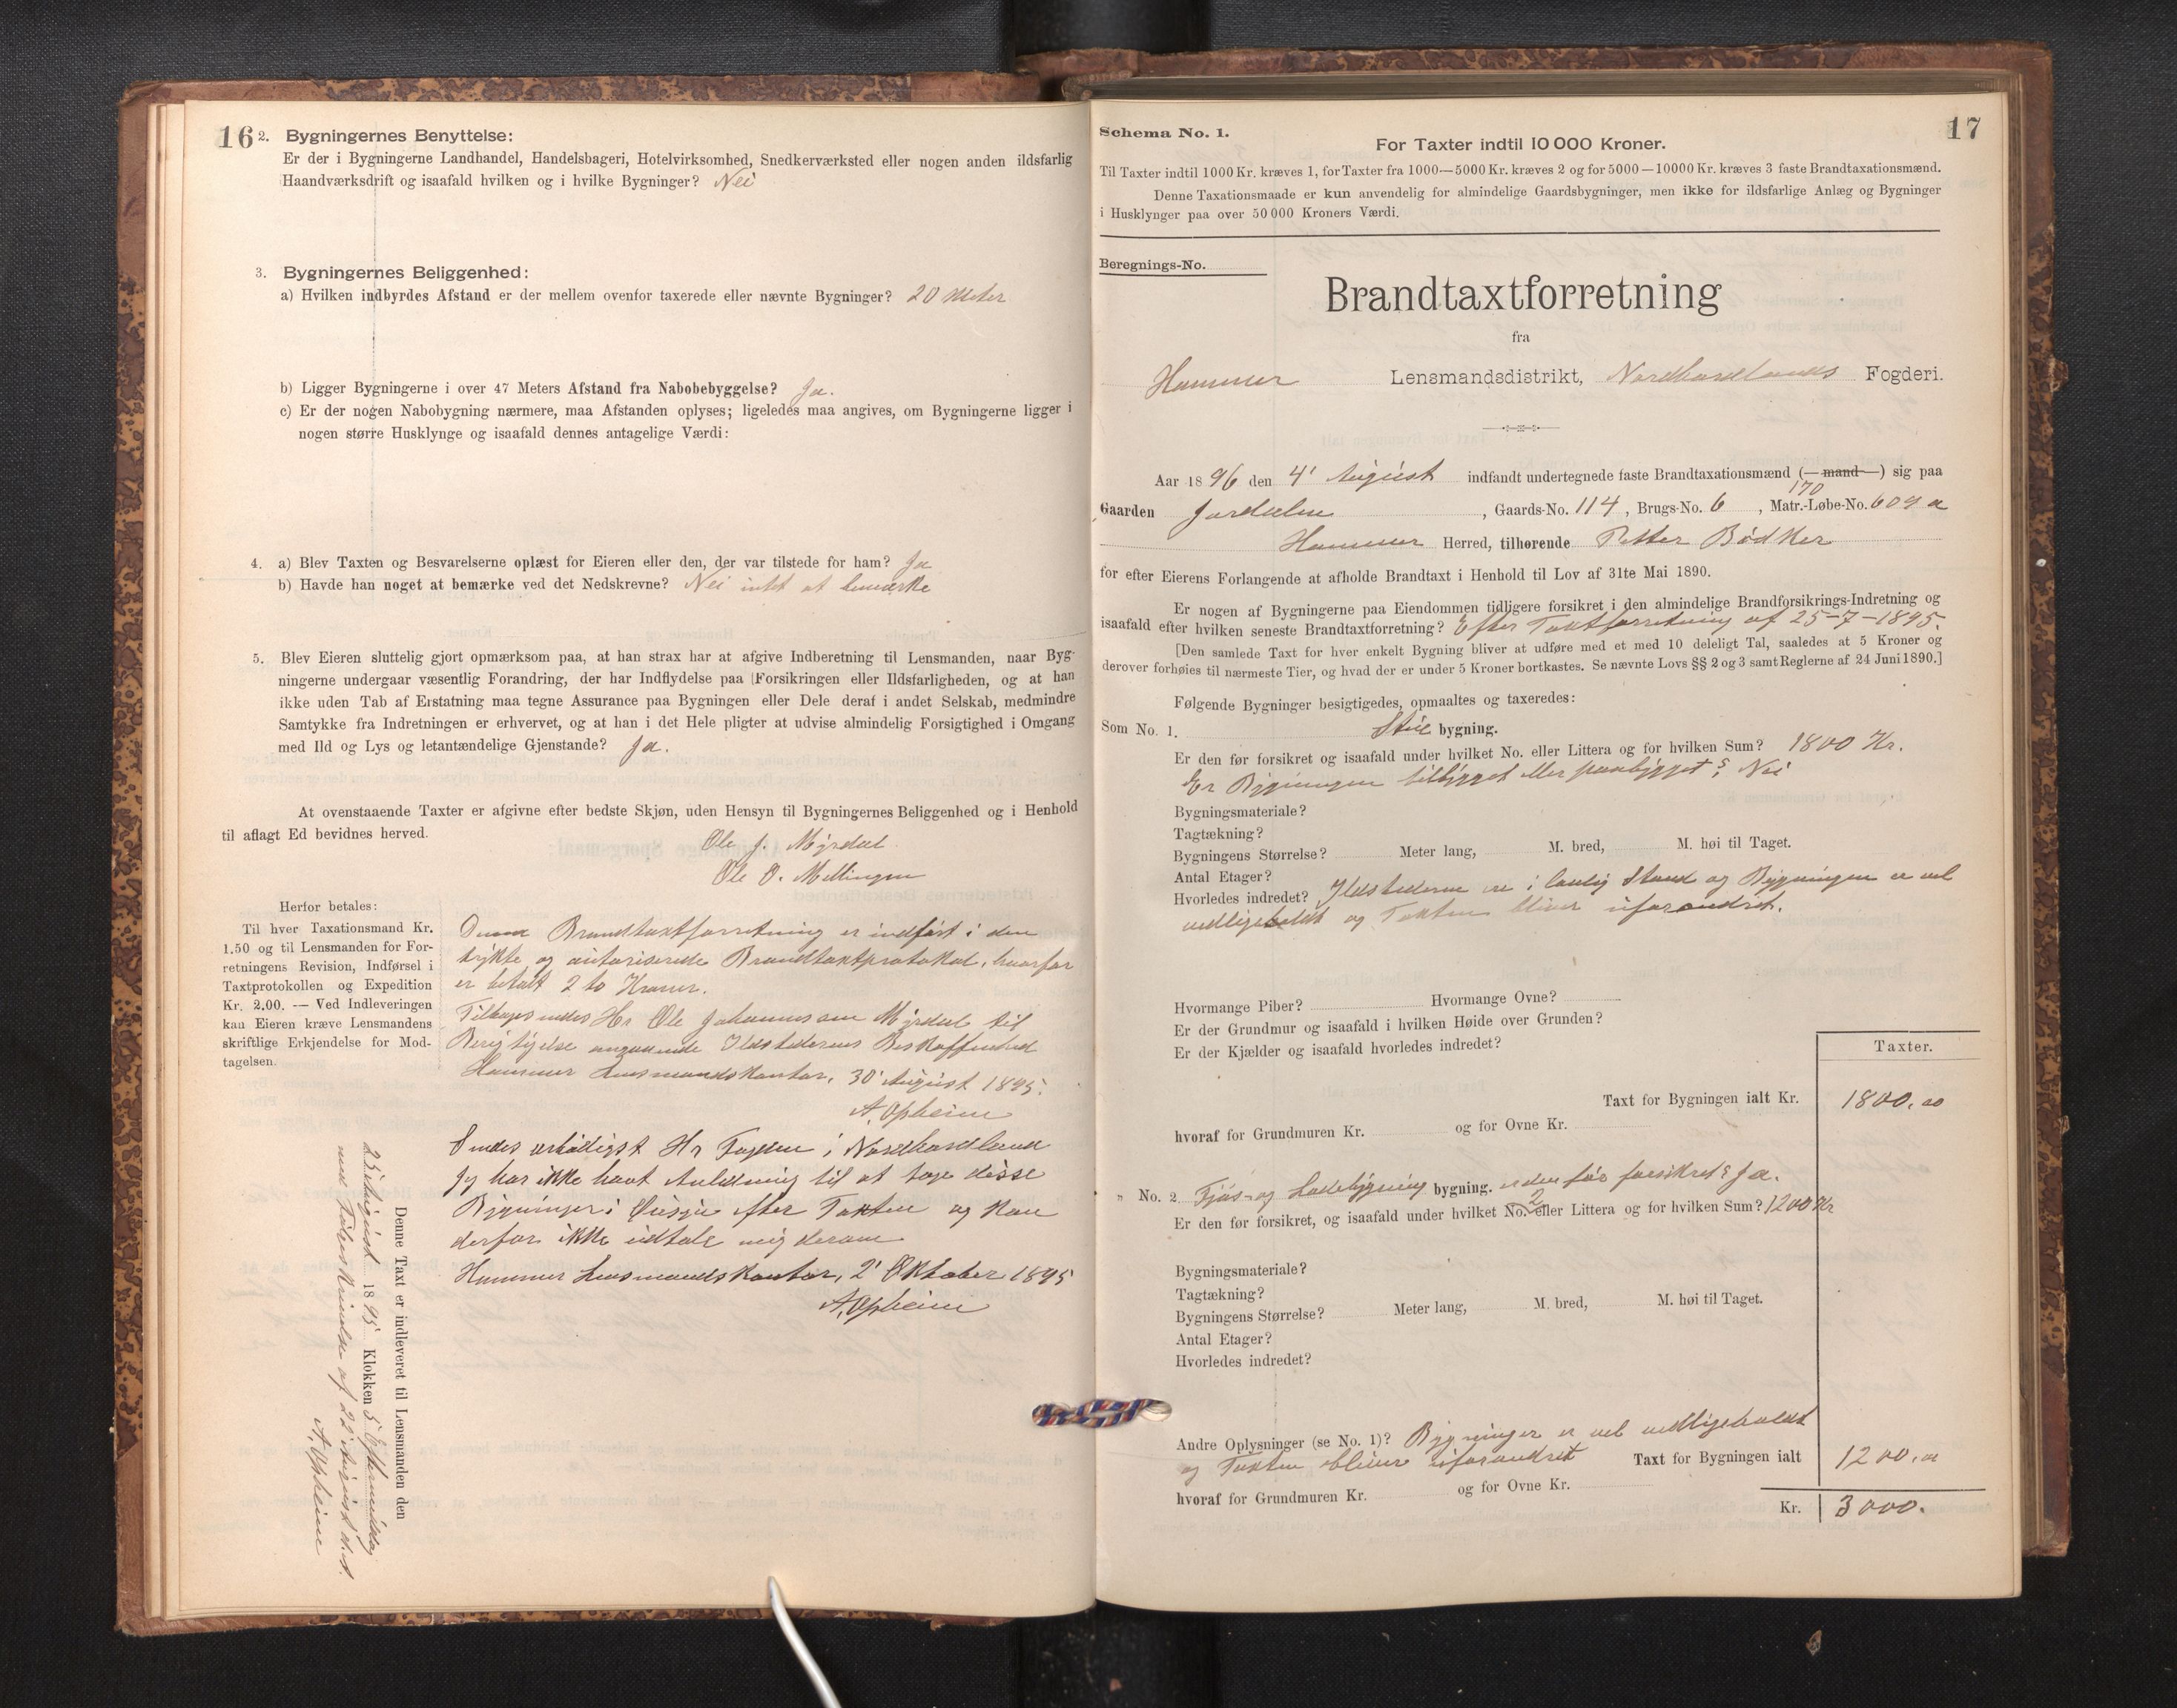 16
2. Bygningernes Benyttelse:
Er der i Bygningerne Landhandel, Handelsbageri, Hotelvirksomhed, Snedkerværksted eller nogen anden ildsfarlig
Haandværksdrift og isaafald hvilken og i hvilke Bygninger? Nei
3. Bygningernes Beliggenhed:
a) Hvilken indbyrdes Afstand er der mellem ovenfor taxerede eller nævnte Bygninger? 20 Meter
b) Ligger Bygningerne i over 47 Meters Afstand fra Nabobebyggelse? Ja.
c) Er der nogen Nabobygning nærmere, maa Afstanden oplyses; ligeledes maa angives, om Bygningerne ligger i
nogen større Husklynge og isaafald dennes antagelige Værdi:
4. a) Blev Taxten og Besvarelserne oplæst for Eieren eller den, der var tilstede for ham? Ja
b) Havde han noget at bemærke ved det Nedskrevne? Nei intet at bemærke
5. Blev Eieren sluttelig gjort opmærksom paa, at han strax har at afgive Indberetning til Lensmanden, naar Byg-
ningerne undergaar væsentlig Forandring, der har Indflydelse paa Forsikringen eller Ildsfarligheden, og at han
ikke uden Tab af Erstatning maa tegne Assurance paa Bygningen eller Dele deraf i andet Selskab, medmindre
Samtykke fra Indretningen er erhvervet, og at han i det Hele pligter at udvise almindelig Forsigtighed i Omgang
med Ild og Lys og letantændelige Gjenstande? Ja.
At ovenstaaende Taxter er afgivne efter bedste Skjøn, uden Hensyn til Bygningernes Beliggenhed og i Henhold
til aflagt Ed bevidnes herved.
Ole J. Myrdal
Ole O. Mellingen
Herfor betales:
Til hver Taxationsmand Kr.
1.50 og til Lensmanden for For-
retningens Revision, Indførsel i
Taxtprotokollen og Expedition
Kr. 2.00. — Ved Indleveringen
kan Eieren kræve Lensmandens
skriftlige Erkjendelse for Mod-
tagelsen.
Denne Brandtaxtforretning er indført i den
trykte og autoriserede Brandtaxtprotokol, hvorfor
er betalt 2 to Kroner.
Tilbagesendes Hr Ole Johannessen Myrdal til
Berigtigelse angaaende Ildstedernes Beskaffenhed
Hammer Lensmandskontor, 30' August 1895.
A. Opheim
Sendes ærbødigst Hr Fogden i Nordhordland
Jeg har ikke havt Anledning til at tage disse
Bygninger i Øiesyn efter Taxten og kan
derfor ikke udtale mig derom
Hammer Lensmandskontor, 2' Oktober 1895
A. Opheim
Denne Taxt er indleveret til Lensmanden den
25 August 1895 Klokken 5 Eftermiddag
med Følgeskrivelse af 22 August d. A.
A. Opheim
17
Schema No. 1.
For Taxter indtil 10 000 Kroner.
Til Taxter indtil 1000 Kr. kræves 1, for Taxter fra 1000—5000 Kr. kræves 2 og for 5000—10000 Kr. kræves 3 faste Brandtaxationsmænd.
Denne Taxationsmaade er kun anvendelig for almindelige Gaardsbygninger, men ikke for ildsfarlige Anlæg og Bygninger
i Husklynger paa over 50 000 Kroners Værdi.
Beregnings-No.
Brandtaxtforretning
fra
Hammer Lensmandsdistrikt, Nordhordlands Fogderi.
Aar 1896 den 4' August indfandt undertegnede faste Brandtaxationsmænd (—mand—) sig paa
170
Gaarden Jordalen, Gaards-No. 114, Brugs-No. 6, Matr.-Løbe-No. 609 a
Hammer Herred, tilhørende Petter Bødker
for efter Eierens Forlangende at afholde Brandtaxt i Henhold til Lov af 31te Mai 1890.
Er nogen af Bygningerne paa Eiendommen tidligere forsikret i den almindelige Brandforsikrings-Indretning og
isaafald efter hvilken seneste Brandtaxtforretning? Efter Taxtforretning af 25-7-1895.
[Den samlede Taxt for hver enkelt Bygning bliver at udføre med et med 10 deleligt Tal, saaledes at 5 Kroner og
derover forhøies til nærmeste Tier, og hvad der er under 5 Kroner bortkastes. Se nævnte Lovs §§ 2 og 3 samt Reglerne af 24 Juni 1890.]
Følgende Bygninger besigtigedes, opmaaltes og taxeredes:
Som No. 1. Stue bygning.
Er den før forsikret og isaafald under hvilket No. eller Littera og for hvilken Sum? 1800 Kr.
Er Bygningen tilbygget eller paabygget? Nei
Bygningsmateriale?
Tagtækning?
Bygningens Størrelse? Meter lang, M. bred, M. høi til Taget.
Antal Etager?
Hvorledes indredet? Ildstederne er i lovlig Stand og Bygningen er vel
vedligeholdt og Taxten bliver uforandret.
Hvormange Piber? Hvormange Ovne?
Er der Grundmur og isaafald i hvilken Høide over Grunden?
Er der Kjælder og isaafald hvorledes indredet?
Taxter.
Taxt for Bygningen ialt Kr. 1800,00
hvoraf for Grundmuren Kr. og for Ovne Kr.
" No. 2 Fjøs- og Ladebygning bygning. er den før forsikret? Ja.
Er den før forsikret, og isaafald under hvilket No. 2 eller Littera og for hvilken Sum? 1200 Kr
Bygningsmateriale?
Tagtækning?
Bygningens Størrelse? Meter lang, M. bred, M. høi til Taget.
Antal Etager?
Hvorledes indredet?
Andre Oplysninger (se No. 1)? Bygninger er vel vedligeholdt
og Taxten bliver uforandret Taxt for Bygningen ialt 1200,00
hvoraf for Grundmuren Kr. og for Ovne Kr.
Kr. 3000.